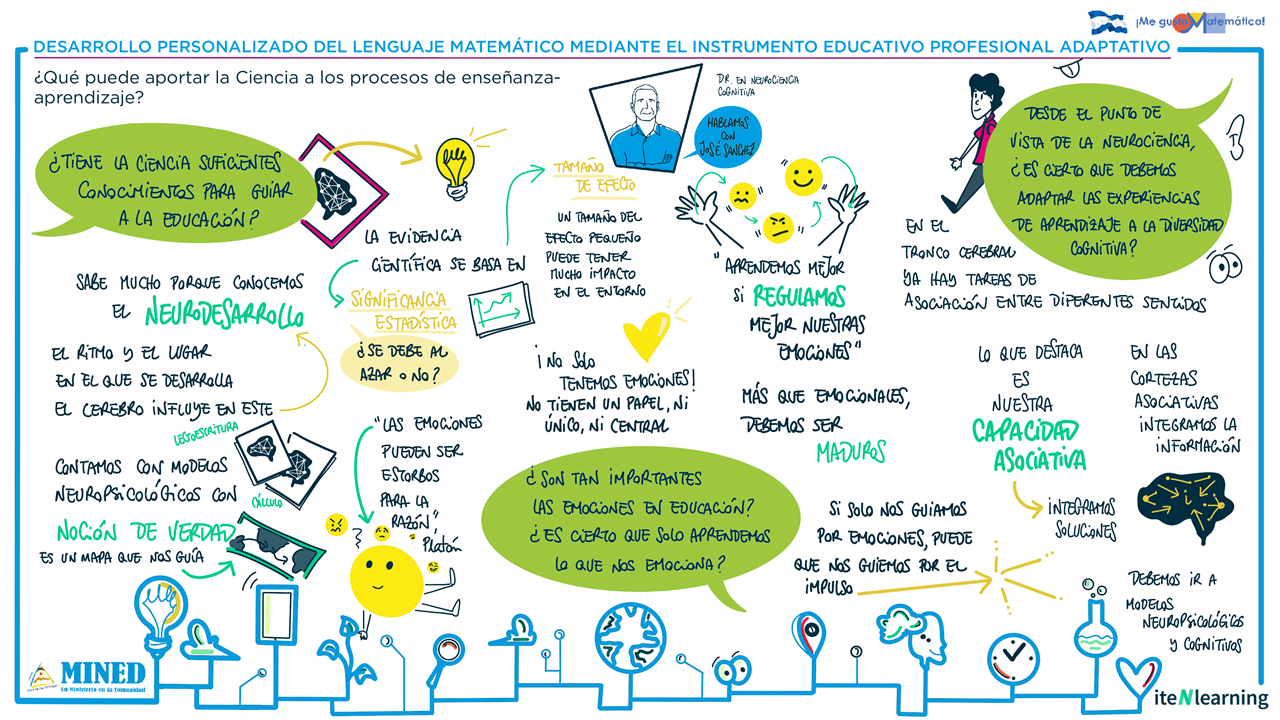 ¡Me gusta Matemática!
DESARROLLO PERSONALIZADO DEL LENGUAJE MATEMÁTICO MEDIANTE EL INSTRUMENTO EDUCATIVO PROFESIONAL ADAPTATIVO
¿Qué puede aportar la Ciencia a los procesos de enseñanza-
aprendizaje?
¿TIENE LA CIENCIA SUFICIENTES
CONOCIMIENTOS PARA GUIAR
A LA EDUCACIÓN?
SABE MUCHO PORQUE CONOCEMOS
EL NEURODESARROLLO
EL RITMO Y EL LUGAR
EN EL QUE SE DESARROLLA
EL CEREBRO INFLUYE EN ESTE
LECTOESCRITURA
CONTAMOS CON MODELOS
NEUROPSICOLÓGICOS CON
CÁLCULO
NOCIÓN DE VERDAD
ES UN MAPA QUE NOS GUÍA
LA EVIDENCIA
CIENTÍFICA SE BASA EN
SIGNIFICANCIA
ESTADÍSTICA
¿SE DEBE AL
AZAR O NO?
TAMAÑO
DE EFECTO
UN TAMAÑO DEL
EFECTO PEQUEÑO
PUEDE TENER
MUCHO IMPACTO
EN EL ENTORNO
DR. EN NEUROCIENCIA
COGNITIVA
HABLAMOS
CON
JOSÉ SANCHEZ
"APRENDEMOS MEJOR
SI REGULAMOS
MEJOR NUESTRAS
EMOCIONES"
¡NO SOLO
TENEMOS EMOCIONES!
NO TIENEN UN PAPEL, NI
ÚNICO, NI CENTRAL
MÁS QUE EMOCIONALES,
DEBEMOS SER
MADUROS
"LAS EMOCIONES
PUEDEN SER
ESTORBOS
PARA LA
RAZÓN",
Platón
¿SON TAN IMPORTANTES
LAS EMOCIONES EN EDUCACIÓN?
¿ES CIERTO QUE SOLO APRENDEMOS
LO QUE NOS EMOCIONA?
SI SOLO NOS GUIAMOS
POR EMOCIONES, PUEDE
QUE NOS GUIEMOS POR EL
IMPULSO
DESDE EL PUNTO DE
VISTA DE LA NEUROCIENCIA,
¿ES CIERTO QUE DEBEMOS
ADAPTAR LAS EXPERIENCIAS
DE APRENDIZAJE A LA DIVERSIDAD
COGNITIVA?
EN EL
TRONCO CEREBRAL
YA HAY TAREAS DE
ASOCIACIÓN ENTRE DIFERENTES SENTIDOS
LO QUE DESTACA
ES
NUESTRA
CAPACIDAD
ASOCIATIVA
INTEGRAMOS
SOLUCIONES
EN LAS
CORTEZAS
ASOCIATIVAS
INTEGRAMOS LA
INFORMACIÓN
DEBEMOS IR A
MODELOS
NEUROPSICOLÓGICOS
Y COGNITIVOS
MINED
Un Ministerio en la Comunidad
iteNlearning